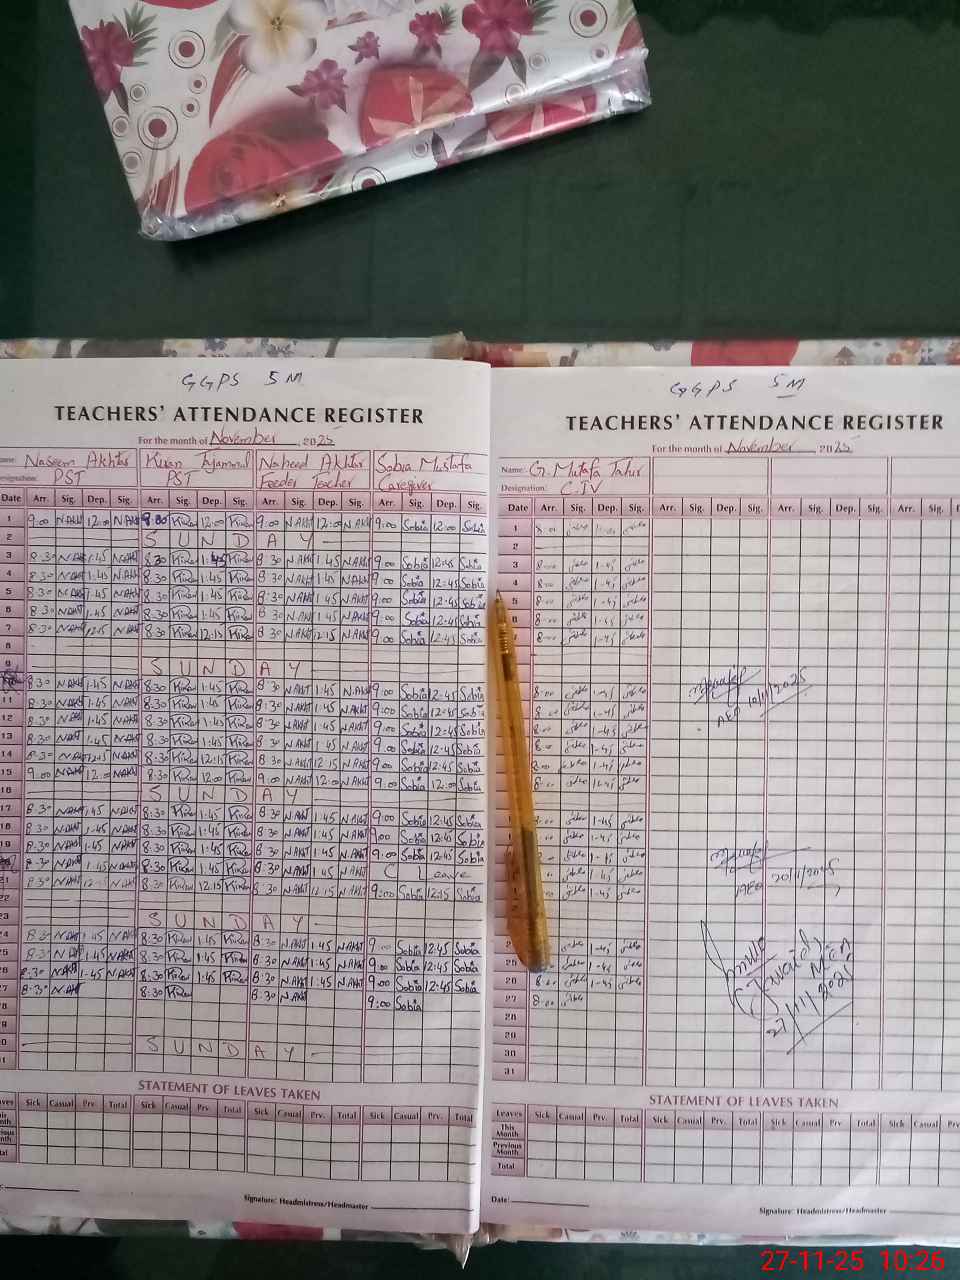 GGPS 5M
TEACHERS' ATTENDANCE REGISTER
For the month of November, 2025
Name: Naseem Akhtar Kiran Tajammul Naheed Akhtar Sobia Mustafa
Designation: PST PST Feeder Teacher Caregiver
Date Arr. Sig. Dep. Sig. Arr. Sig. Dep. Sig. Arr. Sig. Dep. Sig. Arr. Sig. Dep. Sig.
1 9:00 NAKHT 12:00 NAKHT 8:30 Kiran 12:00 Kiran 9:00 NAKHT 12:00 NAKHT 9:00 Sobia 12:00 Sobia
2 SUNDAY
3 8:30 NAKHT 1:45 NAKHT 8:30 Kiran 1:45 Kiran 8:30 NAKHT 1:45 NAKHT 9:00 Sobia 12:45 Sobia
4 8:30 NAKHT 1:45 NAKHT 8:30 Kiran 1:45 Kiran 8:30 NAKHT 1:45 NAKHT 9:00 Sobia 12:45 Sobia
5 8:30 NAKHT 1:45 NAKHT 8:30 Kiran 1:45 Kiran 8:30 NAKHT 1:45 NAKHT 9:00 Sobia 12:45 Sobia
6 8:30 NAKHT 1:45 NAKHT 8:30 Kiran 1:45 Kiran 8:30 NAKHT 1:45 NAKHT 9:00 Sobia 12:45 Sobia
7 8:30 NAKHT 12:15 NAKHT 8:30 Kiran 12:15 Kiran 8:30 NAKHT 12:15 NAKHT 9:00 Sobia 12:45 Sobia
8
9 SUNDAY
8:30 NAKHT 1:45 NAKHT 8:30 Kiran 1:45 Kiran 8:30 NAKHT 1:45 NAKHT 9:00 Sobia 12:45 Sobia
11 8:30 NAKHT 1:45 NAKHT 8:30 Kiran 1:45 Kiran 8:30 NAKHT 1:45 NAKHT 9:00 Sobia 12:45 Sobia
12 8:30 NAKHT 1:45 NAKHT 8:30 Kiran 1:45 Kiran 8:30 NAKHT 1:45 NAKHT 9:00 Sobia 12:45 Sobia
13 8:30 NAKHT 1:45 NAKHT 8:30 Kiran 1:45 Kiran 8:30 NAKHT 1:45 NAKHT 9:00 Sobia 12:45 Sobia
14 8:30 NAKHT 12:15 NAKHT 8:30 Kiran 12:15 Kiran 8:30 NAKHT 12:15 NAKHT 9:00 Sobia 12:45 Sobia
15 9:00 NAKHT 12:00 NAKHT 8:30 Kiran 12:00 Kiran 9:00 NAKHT 12:00 NAKHT 9:00 Sobia 12:00 Sobia
16 SUNDAY
17 8:30 NAKHT 1:45 NAKHT 8:30 Kiran 1:45 Kiran 8:30 NAKHT 1:45 NAKHT 9:00 Sobia 12:45 Sobia
18 8:30 NAKHT 1:45 NAKHT 8:30 Kiran 1:45 Kiran 8:30 NAKHT 1:45 NAKHT 9:00 Sobia 12:45 Sobia
19 8:30 NAKHT 1:45 NAKHT 8:30 Kiran 1:45 Kiran 8:30 NAKHT 1:45 NAKHT 9:00 Sobia 12:45 Sobia
8:30 NAKHT 1:45 NAKHT 8:30 Kiran 1:45 Kiran 8:30 NAKHT 1:45 NAKHT C Leave
21 8:30 NAKHT 12:15 NAKHT 8:30 Kiran 12:15 Kiran 8:30 NAKHT 12:15 NAKHT 9:00 Sobia 12:15 Sobia
22
23 SUNDAY
24 8:30 NAKHT 1:45 NAKHT 8:30 Kiran 1:45 Kiran 8:30 NAKHT 1:45 NAKHT 9:00 Sobia 12:45 Sobia
25 8:30 NAKHT 1:45 NAKHT 8:30 Kiran 1:45 Kiran 8:30 NAKHT 1:45 NAKHT 9:00 Sobia 12:45 Sobia
26 8:30 NAKHT 1:45 NAKHT 8:30 Kiran 1:45 Kiran 8:30 NAKHT 1:45 NAKHT 9:00 Sobia 12:45 Sobia
27 8:30 NAKHT 8:30 Kiran 8:30 NAKHT 9:00 Sobia
SUNDAY
STATEMENT OF LEAVES TAKEN
Leaves Sick Casual Prv. Total Sick Casual Prv. Total Sick Casual Prv. Total Sick Casual Prv. Total
Month
Month
Signature: Headmistress/Headmaster
GGPS 5M
TEACHERS' ATTENDANCE REGISTER
For the month of November 2025
Name: G. Mutafa Tahir
Designation: C.IV
Date Arr. Sig. Dep. Sig. Arr. Sig. Dep. Sig. Arr. Sig. Dep. Sig. Arr. Sig.
1 8:00
2
3 8:00 1-45
4 8:00 1-45
5 8:00 1-45
6 8:00 1-45
7 8:00 1-45
8:00 1-45
8:00 1-45
AEO 10/11/2025
8:00 1-45
8:00 1-45
1-45
1-45
1-45
1-45
AEO 20/11/2025
1-45
1-45
26 8:00 1-45
27 8:00
28
29
30
31
27/11/2025
STATEMENT OF LEAVES TAKEN
Leaves Sick Casual Prv. Total Sick Casual Prv. Total Sick Casual Prv. Total Sick Casual Prv.
This Month
Previous Month
Total
Date:
Signature: Headmistress/Headmaster
27-11-25 10:26